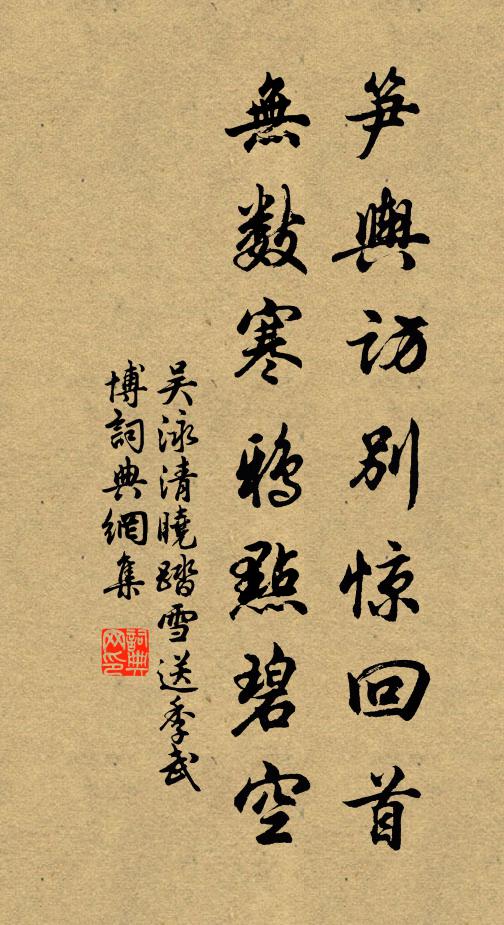 笋舆访别惊回首
無數寒鸦點碧空
吴泳清曉踏雪送季武
博詞典網集
詞典网印